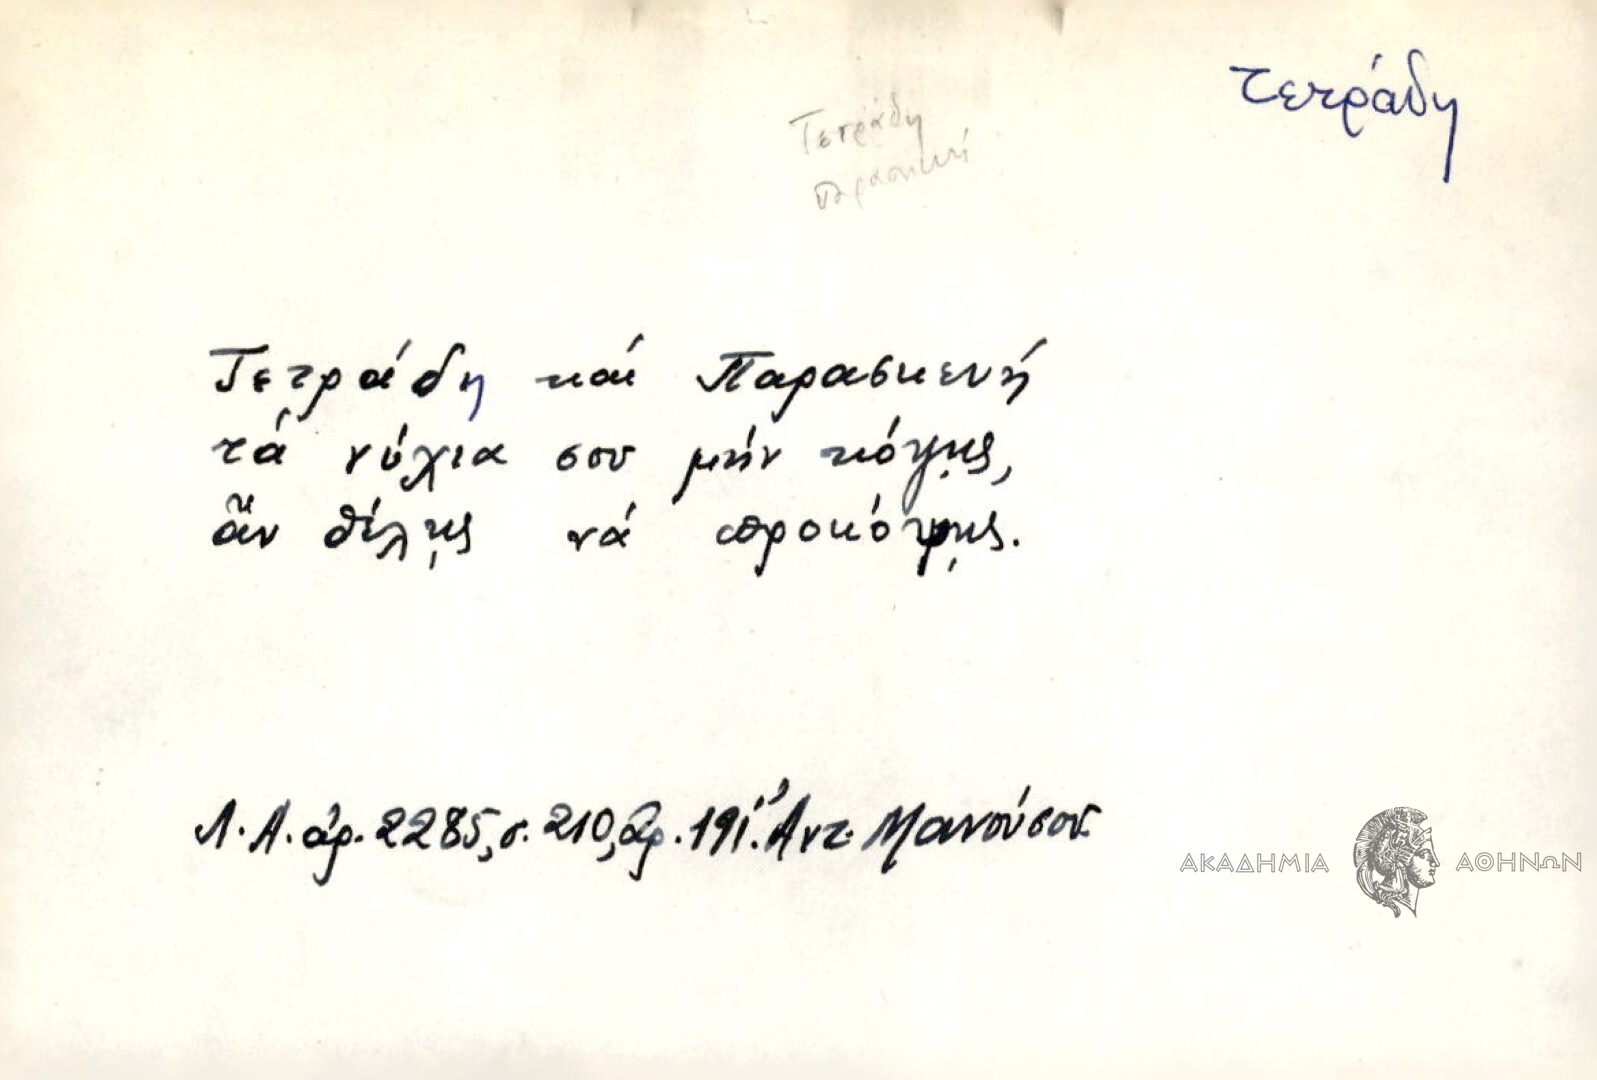 Τετράδη
Τετράδη
Τετράδη καί Παρασκευή
τά νύχια σου μήν κόψῃς,
ἄν θέλῃς νά προκόψῃς.
Λ.Α. ἀρ. 2285, σ. 210, ἀρ. 191. Ἀντ. Μανούσου
ΑΚΑΔΗΜΙΑ ΑΘΗΝΩΝ